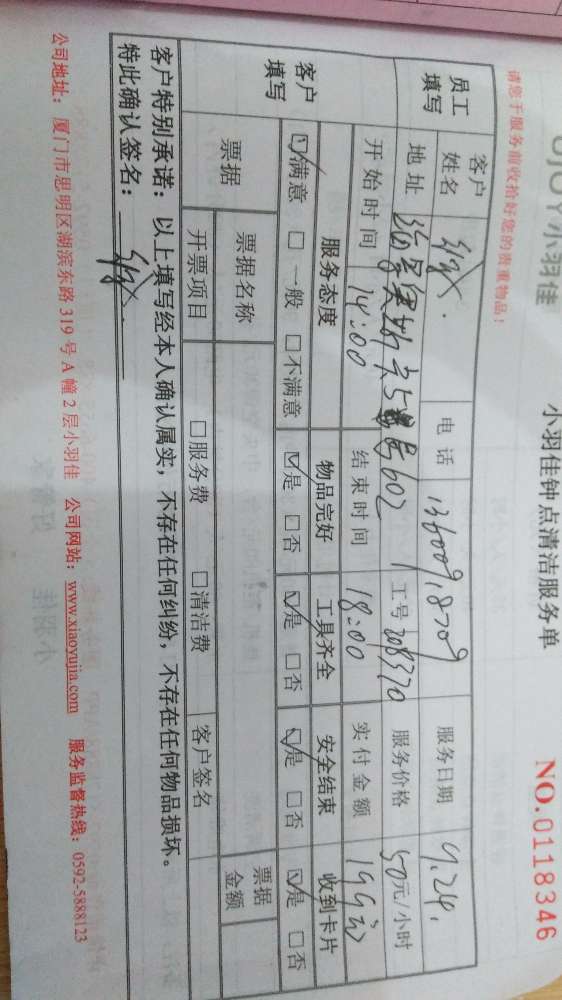 UJOY小羽佳 小羽佳钟点清洁服务单 NO.0118346
请您于服务前收拾好您的贵重物品！
员工填写
客户姓名 电话 服务日期 9.24.
地址 602 工号 208370 服务价格 50元/小时
开始时间 14:00 结束时间 18:00 实付金额 199元
客户填写
服务态度 物品完好 工具齐全 安全结束 收到卡片
☑满意 □一般 □不满意 ☑是 □否 ☑是 □否 ☑是 □否 ☑是 □否
票据 票据名称 票据金额
开票项目 □服务费 □清洁费 客户签名
客户特别承诺：以上填写经本人确认属实，不存在任何纠纷，不存在任何物品损坏。
特此确认签名：
公司地址：厦门市思明区湖滨东路 319 号 A 幢 2 层小羽佳 公司网站：www.xiaoyujia.com 服务监督热线：0592-5888123